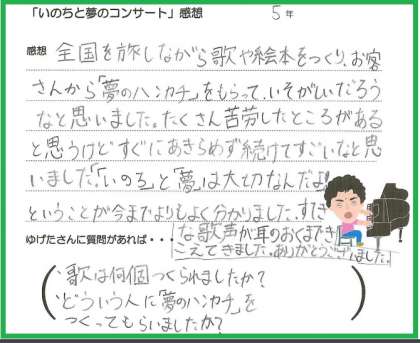 「いのちと夢のコンサート」感想 5年
感想 全国を旅しながら歌や絵本をつくり、お客
さんから「夢のハンカチ」をもらって、いそがしいだろう
なと思いました。たくさん苦労したところがある
と思うけどすぐにあきらめず続けてすごいなと思
いました。「いのち」と「夢」は大切なんだよ
ということが今までよりもよく分かりました。すてき
な歌声が耳のおくまでき
こえてきました。ありがとうございました。
ゆげたさんに質問があれば・・・
歌は何個つくられましたか?
どういう人に「夢のハンカチ」を
つくってもらいましたか?